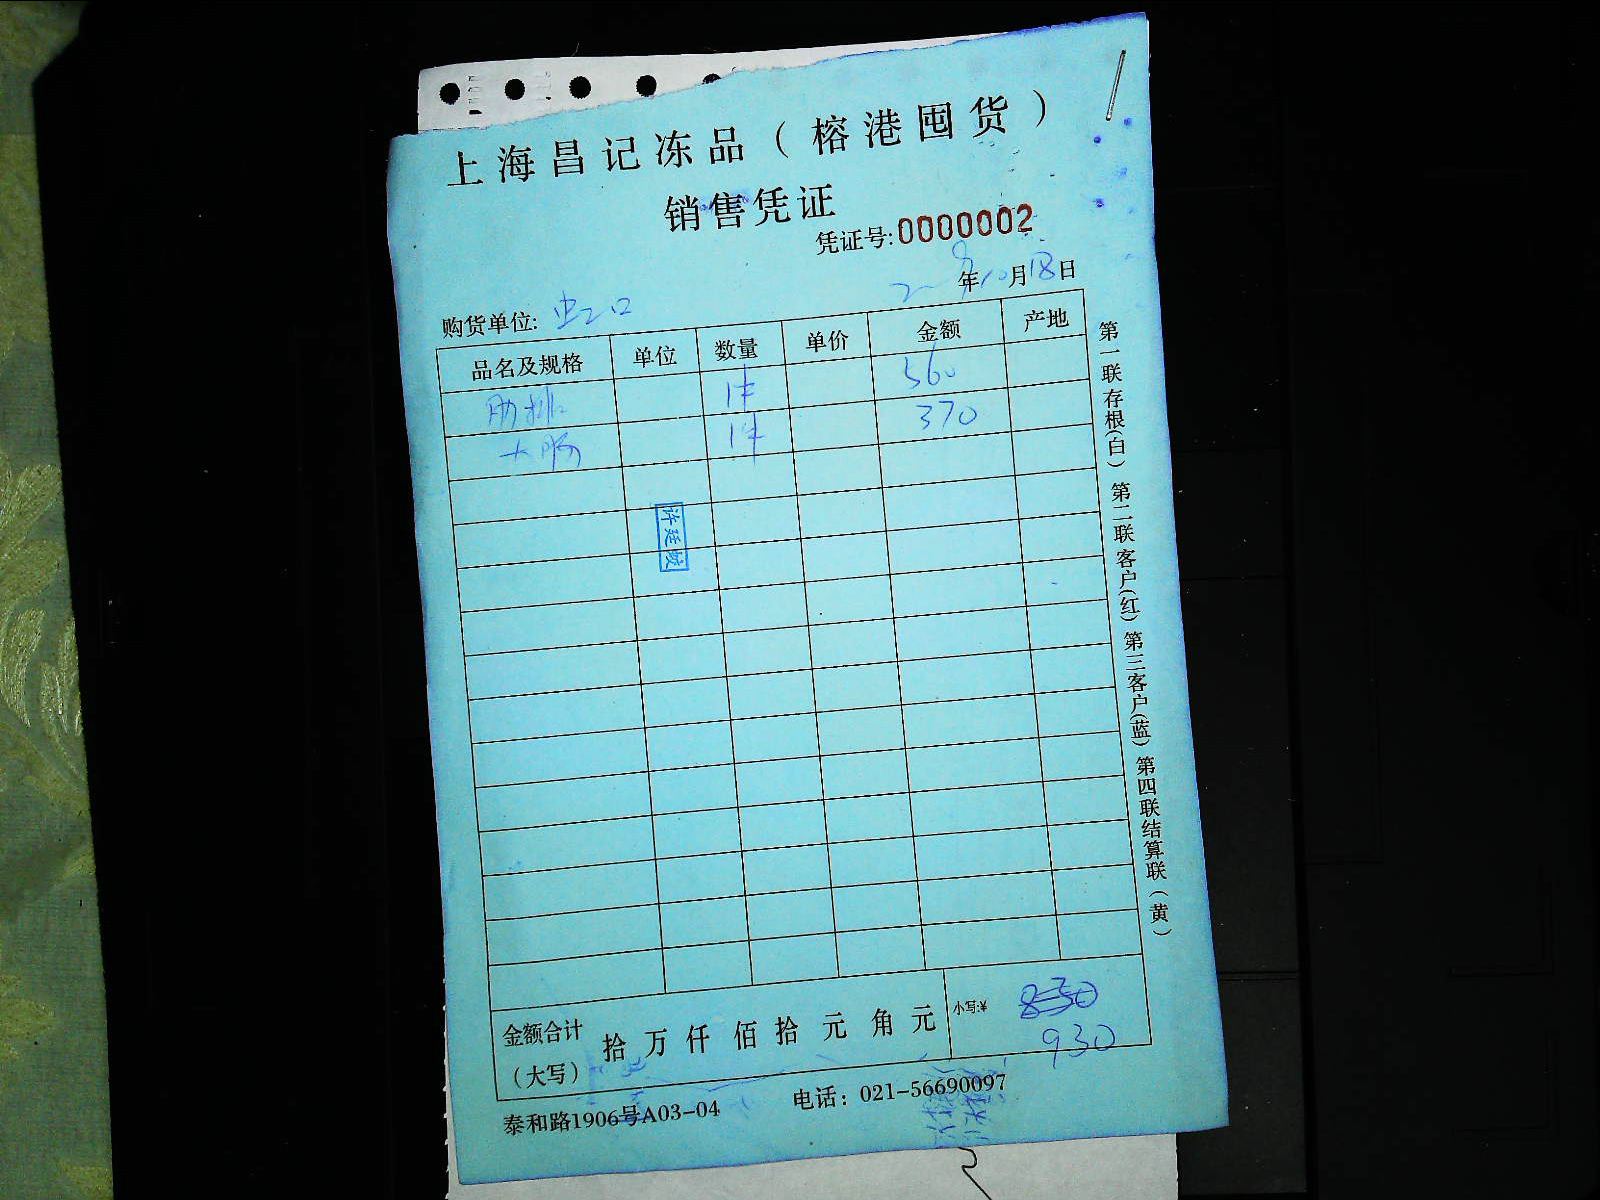 上海昌记冻品（榕港囤货）
销售凭证
凭证号:0000002
年10月18日
购货单位: 虹口
品名及规格 单位 数量 单价 金额 产地
肋排 1件 560
大肠 1件 370
金额合计（大写） 拾 万 仟 佰 拾 元 角 元 小写:¥ 930
泰和路1906号A03-04 电话：021-56690097
第一联存根(白) 第二联客户(红) 第三客户(蓝) 第四联结算联(黄)